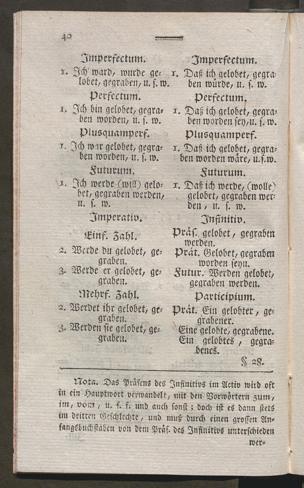 40
Imperfectum. Imperfectum.
1. Ich ward, wurde ge- 1. Daß ich gelobet, gegra-
lobet, gegraben, u. s. w. ben würde, u. s. w.
Perfectum. Perfectum.
1. Ich bin gelobet, gegra- 1. Daß ich gelobet, gegra-
ben worden, u. s. w. ben worden sey, u. s. w.
Plusquamperf. Plusquamperf.
1. Ich war gelobet, gegra- 1. Daß ich gelobet, gegra-
ben worden, u. s. w. ben worden wäre, u. s. w.
Futurum. Futurum.
1. Ich werde (will) gelo- 1. Daß ich werde, (wolle)
bet, gegraben werden, gelobet, gegraben wer-
u. s. w. den, u. s. w.
Imperativ. Infinitiv.
Einf. Zahl. Präs. gelobet, gegraben
werden.
2. Werde du gelobet, ge- Prät. Gelobet, gegraben
graben. worden seyn.
3. Werde er gelobet, ge- Futur. Werden gelobet,
graben. gegraben werden.
Mehrf. Zahl. Participium.
2. Werdet ihr gelobet, ge- Prät. Ein gelobter, ge-
graben. grabener.
3. Werden sie gelobet, ge- Eine gelobte, gegrabene.
graben. Ein gelobtes, gegra-
benes.
§ 28.
Nota. Das Präsens des Infinitivs im Activ wird oft
in ein Hauptwort verwandelt, mit den Vorwörtern zum,
im, vom, u. s. f. und auch sonst; doch ist es dann stets
im dritten Geschlechte, und muß durch einen großen An-
fangsbuchstaben von dem Präs. des Infinitivs unterschieden
wer-